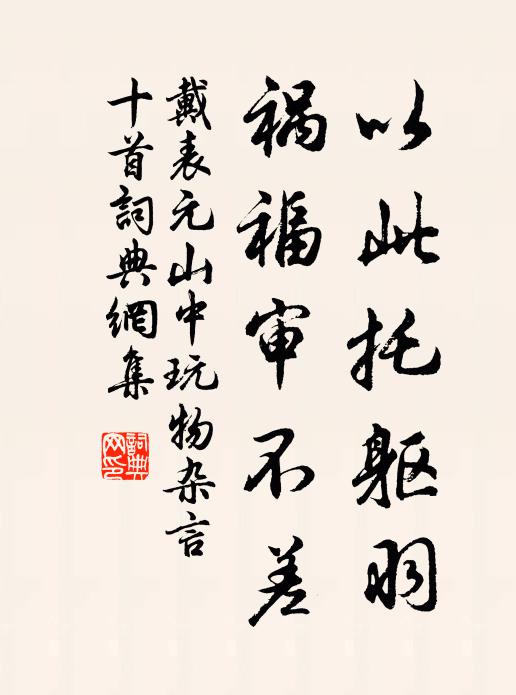 以此托躯羽
祸福审不差
戴表元山中玩物杂言
十首詞典網集
詞典
网印